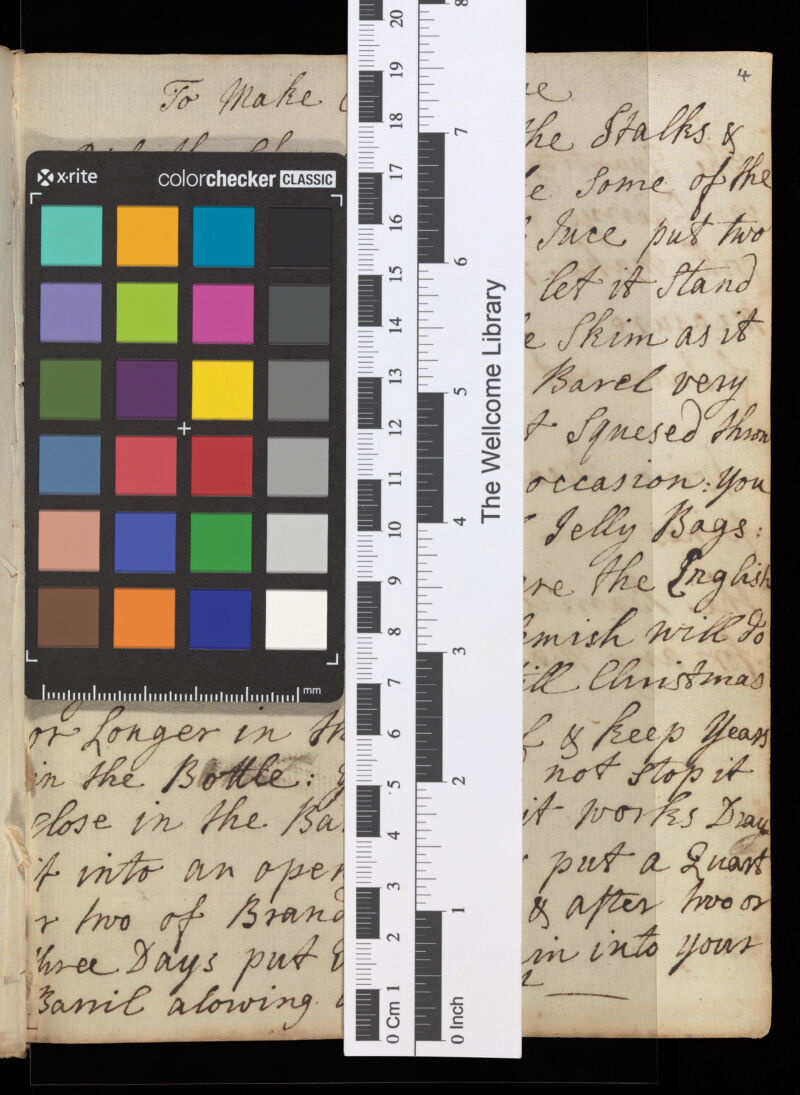 4
To Make
the Stalks &
Some of the
Juce put two
let it Stand
Skim as it
Barel very
Squesed throu
occasion: you
Jelly Bags:
the English
will do
Christmas
or Longer in & keep Years
in the Bottle: not stop it
close in the it works Dray
it into an open put a Quart
or two of & after two or
three Days put into your
Barril alowing
x-rite
colorchecker CLASSIC
mm
The Wellcome Library
0 Cm 1 2 3 4 5 6 7 8 9 10 11 12 13 14 15 16 17 18 19 20
0 Inch 1 2 3 4 5 6 7 8